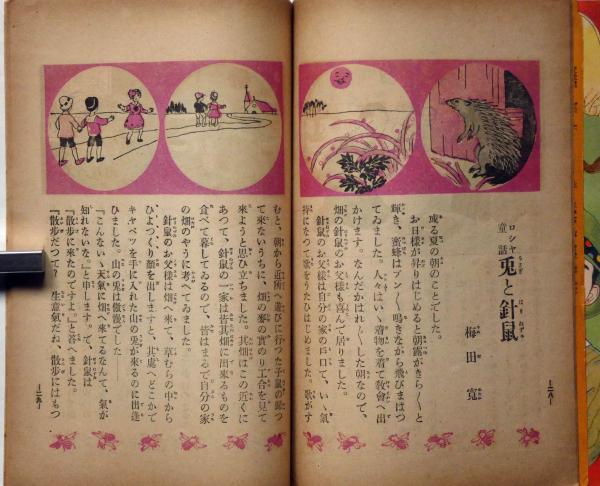 ロシヤ童話
兎と針鼠
梅田寛
或る夏の朝のことでした。
お日様が昇りはじめると朝露がきら〱と
輝き、蜜蜂はブン〱鳴きながら飛びまはつ
てゐました。人々はいゝ着物を着て教會へ出
かけます。なんだかはれ〲した朝なので、
畑の針鼠のお父様も喜んで居りました。
針鼠のお父様は自分の家の戸口で、いゝ氣
持になつて歌をうたひはじめました。歌がす
—二八—
むと、朝から近所へ遊びに行つた子鼠の歸つ
て來ないうちに、畑の麥の實のり工合を見て
來ようと思ひ立ちました。其畑はこの近くに
あつて、針鼠の一家は皆其畑に出來るものを
食べて暮してゐるので、皆はまるで自分の家
の畑のやうに考へてゐました。
針鼠のお父様は畑へ來て、草むらの中から
ひよつくり顏を出しますと、其處へどこかで
キヤベツを手に入れた山の兎が來るのに出逢
ひました。山の兎は傲慢でした
『こんないゝ天氣に畑へ來てるなんて、氣が
知れないな。』と申します。で、針鼠は
『散歩に來たのですよ。』と答へました。
『散歩だつて？生意氣だね、散歩にはもつ
—二九—